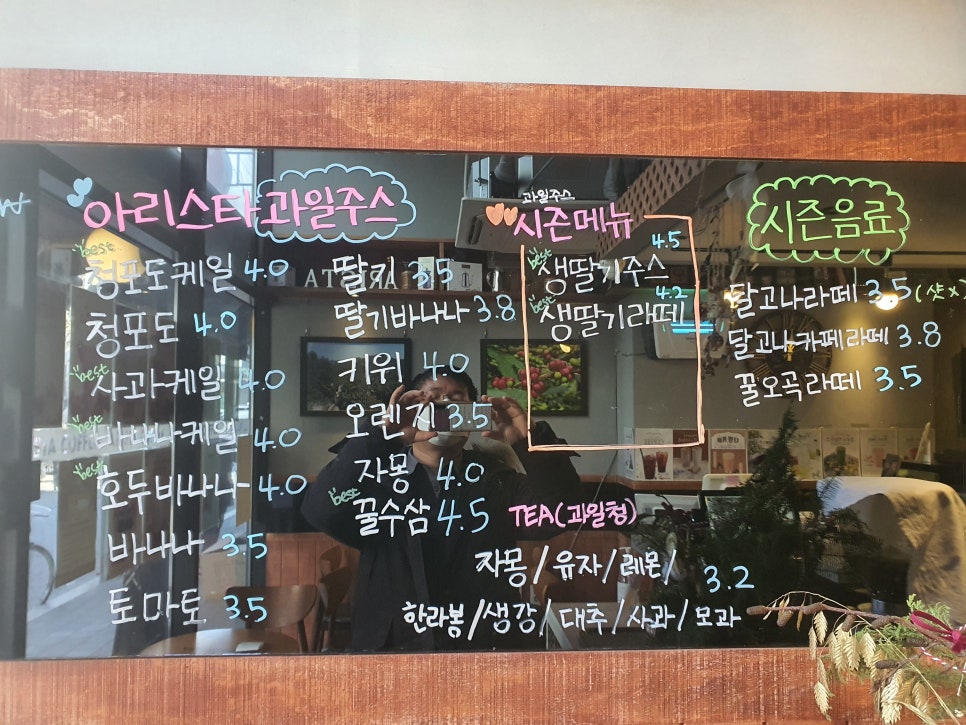 아리스타 과일주스
best
청포도케일 4.0
청포도 4.0
best
사과케일 4.0
best
바나나케일 4.0
best
호두바나나 4.0
바나나 3.5
토마토 3.5
딸기 3.5
딸기바나나 3.8
키위 4.0
오렌지 3.5
자몽 4.0
best
꿀수삼 4.5
과일주스
시즌메뉴
best
생딸기주스 4.5
best
생딸기라떼 4.2
TEA(과일청)
자몽/유자/레몬/
한라봉/생강/대추/사과/모과
3.2
시즌음료
달고나라떼 3.5(샷x)
달고나카페라떼 3.8
꿀오곡라떼 3.5